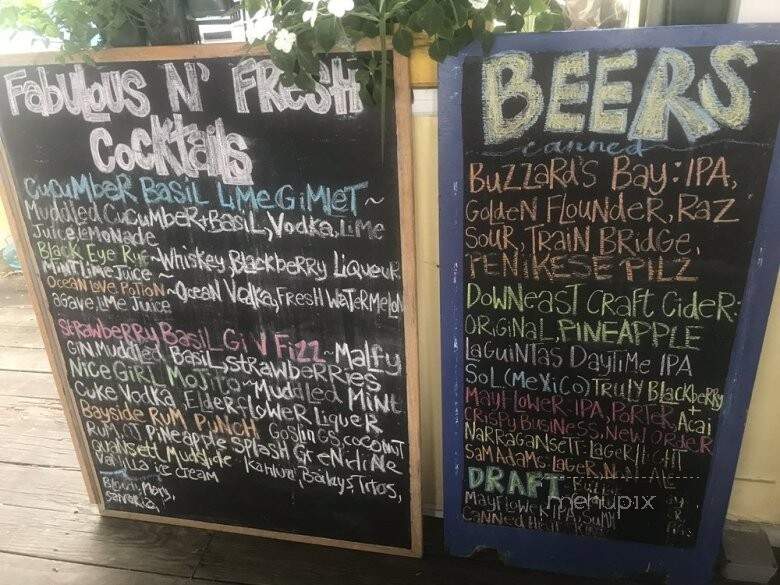 FabULOUS N' FRESH
COCKtails
CUCUMBER BASIL LIME GIMLET ~
Muddled CUCUMBER + BASIL, Vodka, LIME
JUICE, LEMONADE
Black Eye ~ WHISKEY, BLACKBERRY LIQUEUR,
MINT LIME JUICE
OCEAN LOVE POTION ~ OCEAN VODKA, FRESH WATERMELON
agave, LIME JUICE
STRAWBERRY BASIL GIN FIZZ ~ MALFY
GIN MUDDLED BASIL, STRAWBERRIES
NICE GIRL MOJITO ~ MUDDLED MINT
CUKE VODKA, ELDERFLOWER LIQUER
BAYSIDE RUM PUNCH GOSLINGS, COCONUT
RUM, OJ, PINEAPPLE SPLASH GRENADINE
QUANSETT MUDSLIDE KAHLUA, BAILEYS, TITOS,
VANILLA ICE CREAM
BLOODY MARY,
SANGRIA
BEERS
canned
BUZZARD'S BAY: IPA,
GOLDEN FLOUNDER, RAZ
SOUR, TRAIN BRIDGE,
PENIKESE PILZ
DOWNEAST CRAFT CIDER:
ORIGINAL, PINEAPPLE
LAGUINTAS DAYTIME IPA
SOL (MEXICO) TRULY BLACKBERRY
+ Acai
MAYFLOWER-IPA, PORTER,
CRISPY BUSINESS, NEW ORDER
NARRAGANSETT: LAGER/LIGHT
SAM ADAMS: LAGER, N/ ALE
DRAFT
MAYFLOWER IPA, SUMM
CANNED
menupix